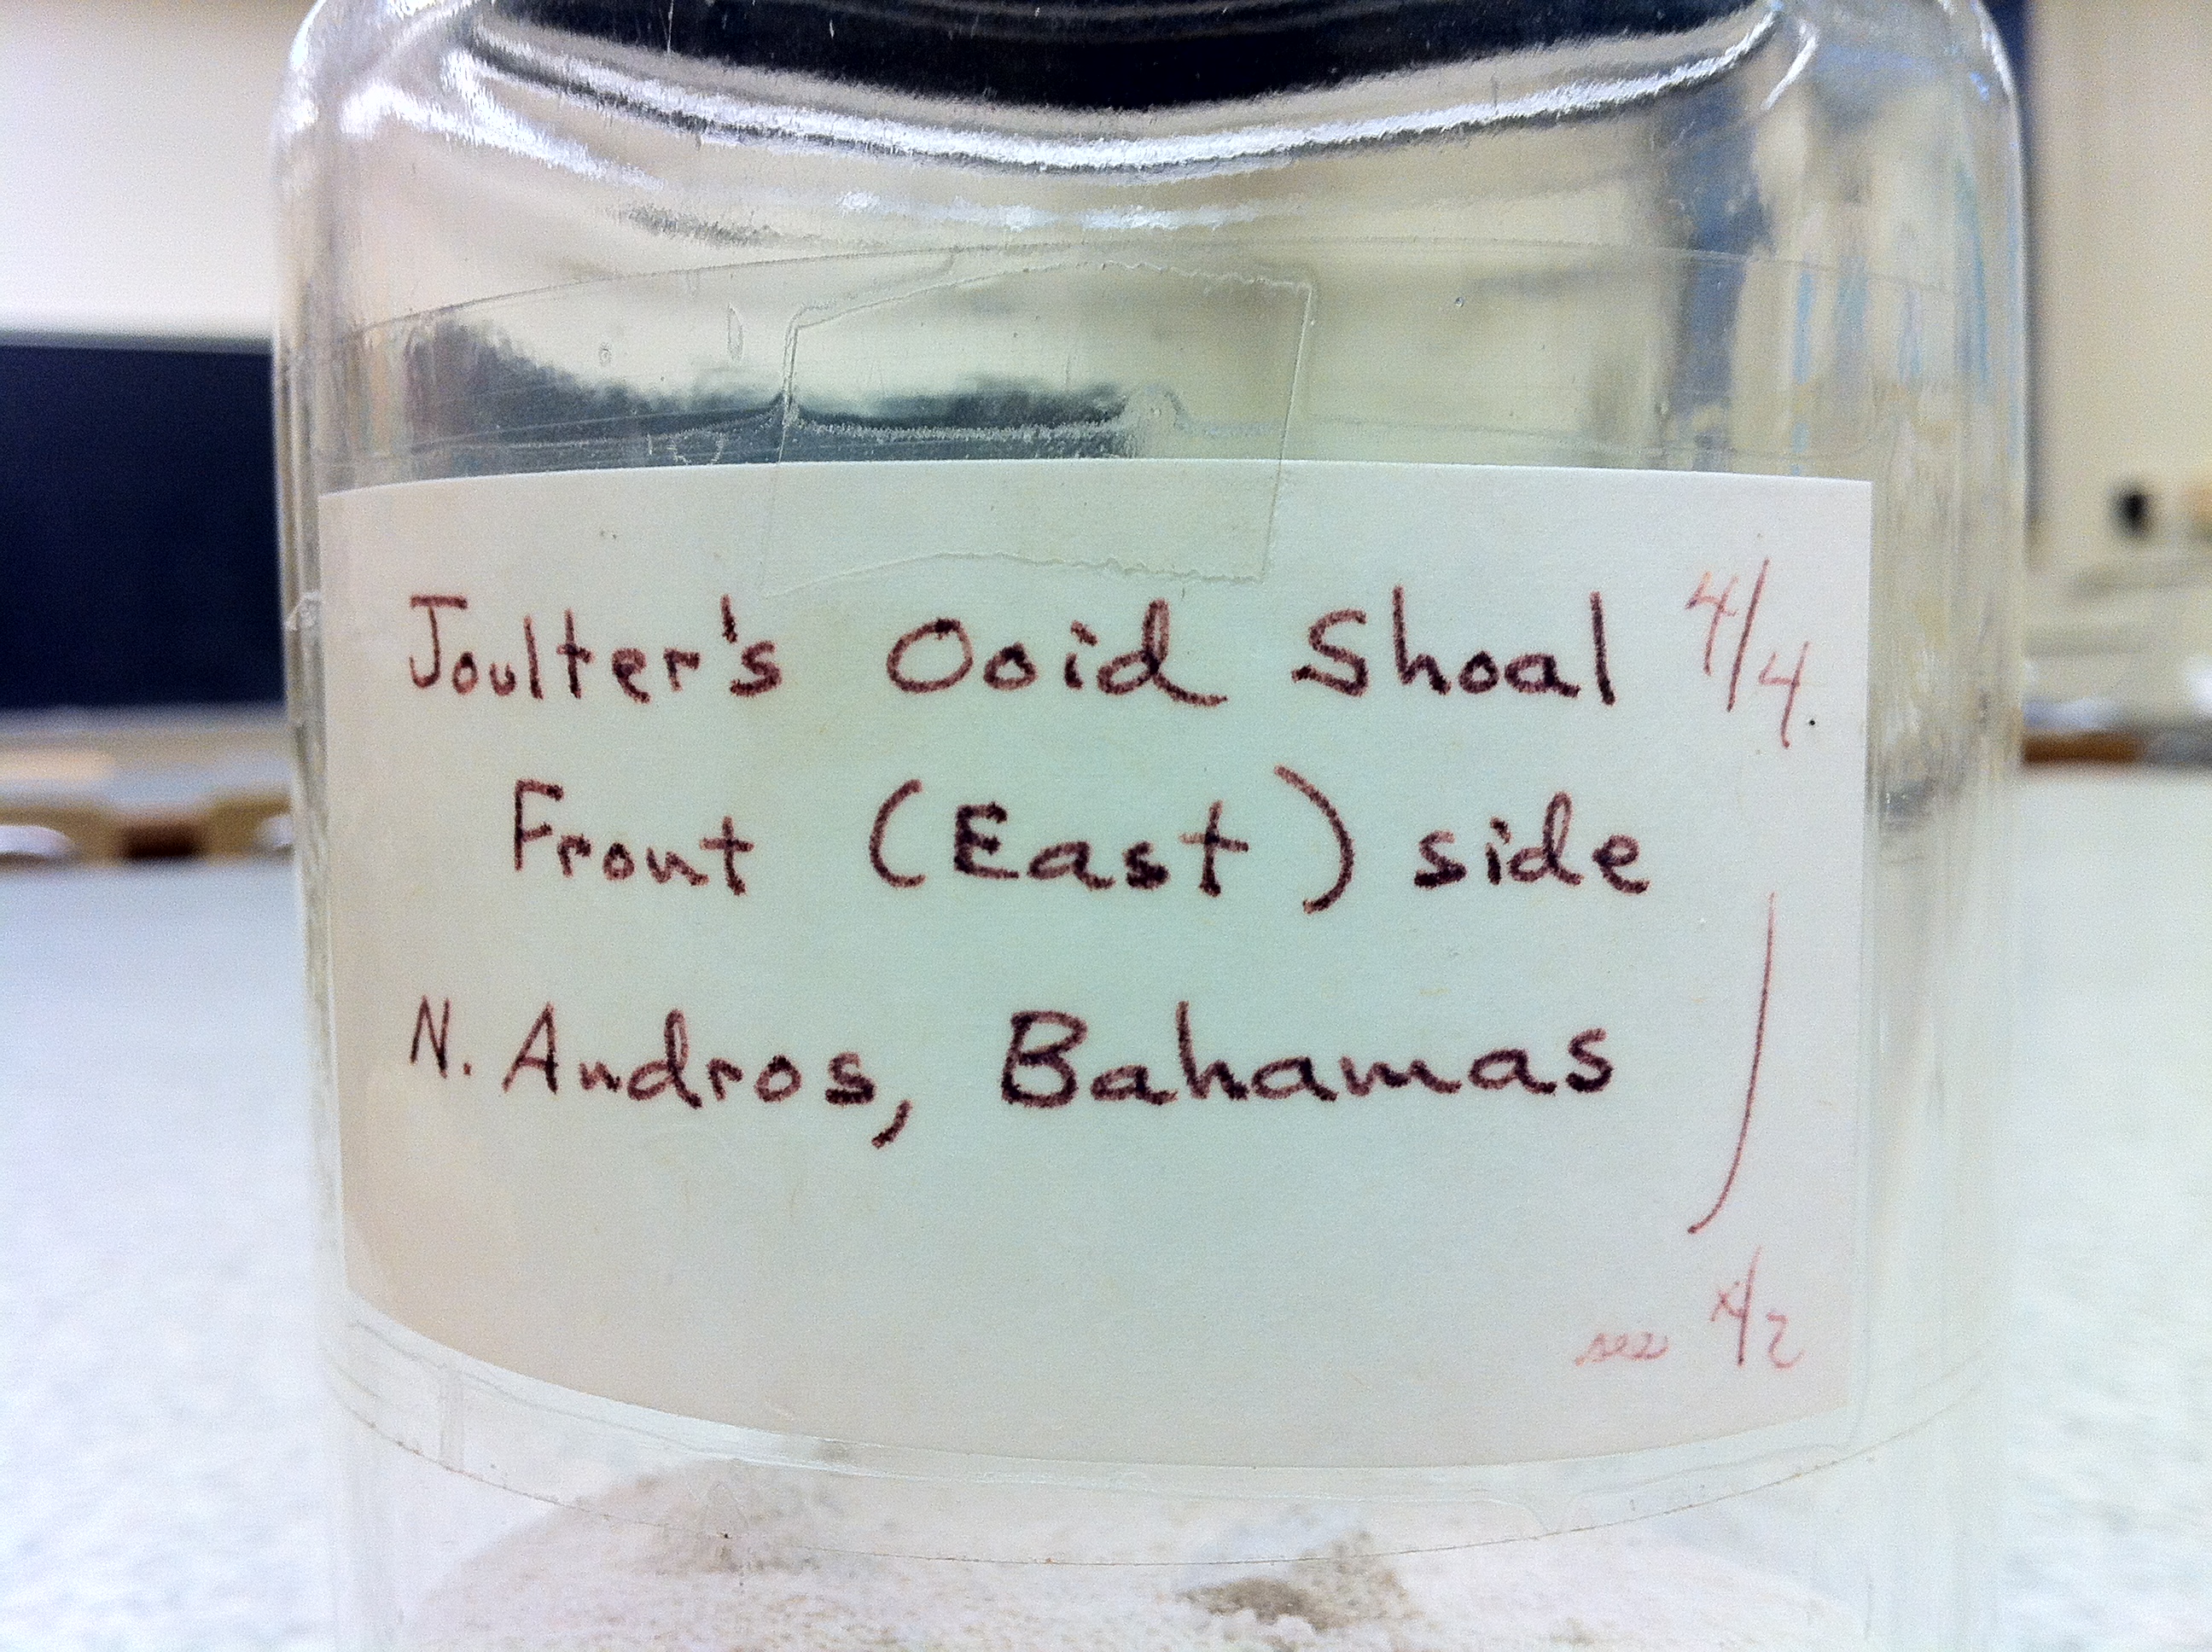 Joulter's Ooid Shoal 4/4
Front (East) side
N. Andros, Bahamas
see